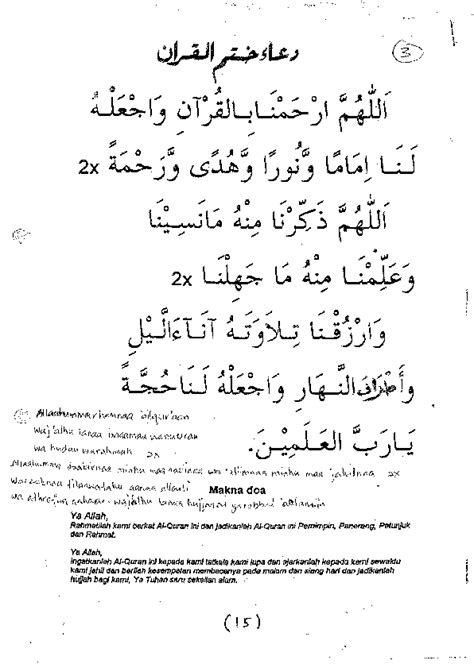 دعاء ختم القران
3
اَللّٰهُمَّ ارْحَمْنَـا بِـالقُرْآنِ وَاجْعَلْـهُ
لَـنَـا اِمَامًا وَّنُورًا وَّهُدًى وَّرَحْمَةً 2x
اَللّٰهُمَّ ذَكِّرْنَا مِنْهُ مَانَسِيْنَا
وَعَلِّمْنَـا مِنْهُ مَا جَهِلْنَـا 2x
وَارْزُقْنَا تِـلَاوَتَـهُ آنَـآءَالَّيْلِ
وَأَطْرَافَ النَّـهَارِ وَاجْعَلْهُ لَـنَاحُجَّـةً
يَـارَبَّ الْعَـلَمِيْنَ.
Allahummarhamnaa bilqur'aan
waj'alhu lanaa imaamaa wanuuran
wa hudau warahmah 2x
Allahumma dzakirnaa minhu maa nasiinaa wa 'allimnaa minhu maa jahilnaa 2x
Makna doa
Ya Allah,
Rahmatilah kami berkat Al-Quran ini dan jadikanlah Al-Quran ini Pemimpin, Penerang, Petunjuk
dan Rahmat.
Ya Allah,
ingatkanlah Al-Quran ini kepada kami tatkala kami lupa dan ajarkanlah kepada kami sewaktu
kami jahil dan berilah kesempatan membacanya pada malam dan siang hari dan jadikanlah
hujjah bagi kami, Ya Tuhan seru sekalian alam.
(15)